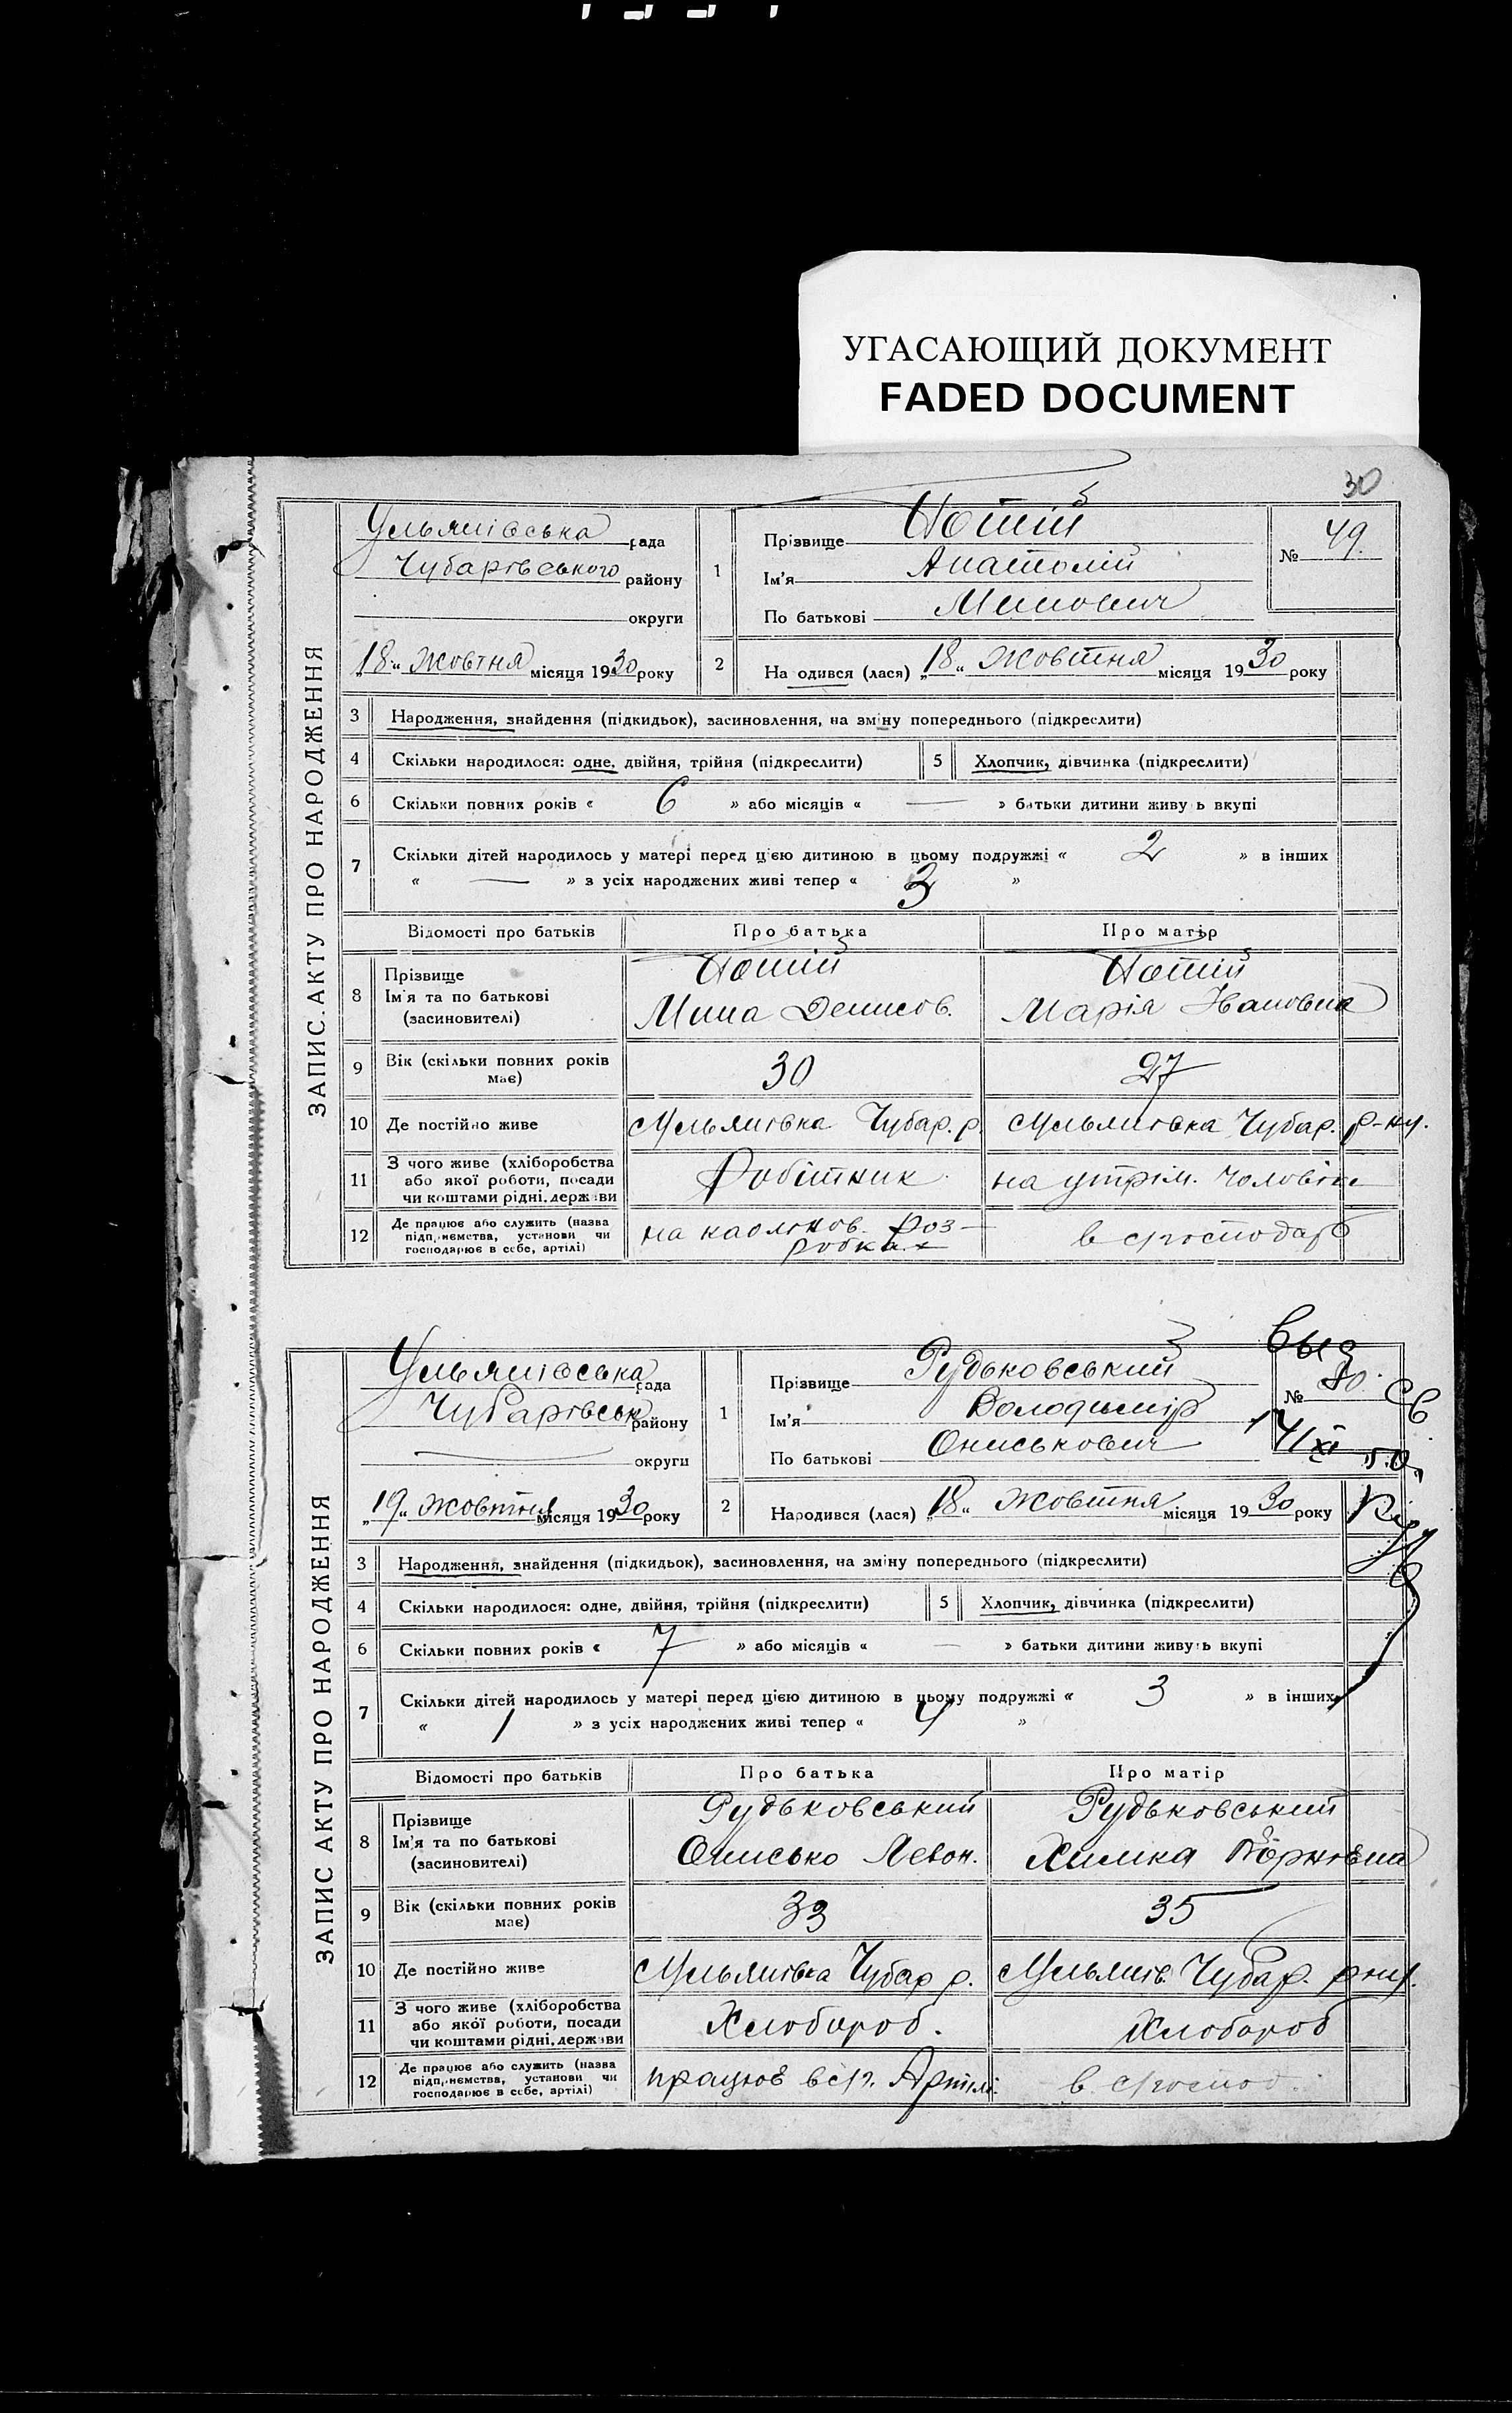 УГАСАЮЩИЙ ДОКУМЕНТ
FADED DOCUMENT
30
ЗАПИС.АКТУ ПРО НАРОДЖЕННЯ
Ульянівська рада
Чубарівського району
округи
„18“ Жовтня місяця 1930 року
1
Прізвище Нотій
Ім'я Анатолій
По батькові Минович
№ 49.
2
На одився (лася) „18“ Жовтня місяця 1930 року
3 Народження, знайдення (підкидьок), засиновлення, на зміну попереднього (підкреслити)
4 Скільки народилося: одне, двійня, трійня (підкреслити)
5 Хлопчик, дівчинка (підкреслити)
6 Скільки повних років « 6 » або місяців « — » батьки дитини живу ь вкупі
7 Скільки дітей народилось у матері перед цією дитиною в цьому подружжі « 2 » в інших
« — » з усіх народжених живі тепер « 3 »
Відомості про батьків Про батька Про матір
8 Прізвище Нотій Нотій
Ім'я та по батькові Мина Денисов. Марія Івановна
(засиновителі)
9 Вік (скільки повних років має) 30 27
10 Де постійно живе с Ульянівка Чубар. р. с Ульянівка Чубар. р-ну.
11 З чого живе (хліборобства або якої роботи, посади чи коштами рідні, держави Робітник на утрім. чоловіка
12 Де працює або служить (назва підприємства, установи чи господарює в себе, артілі) на каолінов. роз-
робках в с/господар
ЗАПИС АКТУ ПРО НАРОДЖЕННЯ
Ульянівська рада
Чубарівськ району
округи
„19“ Жовтня місяця 1930 року
1
Прізвище Рудьковський
Ім'я Володимір
По батькові Ониськович
Выд
№ 50.
св
2
Народився (лася) „18“ Жовтня місяця 1930 року
3 Народження, знайдення (підкидьок), засиновлення, на зміну попереднього (підкреслити)
4 Скільки народилося: одне, двійня, трійня (підкреслити)
5 Хлопчик, дівчинка (підкреслити)
6 Скільки повних років « 7 » або місяців « — » батьки дитини живуть вкупі
7 Скільки дітей народилось у матері перед цією дитиною в цьому подружжі « 3 » в інших
« 1 » з усіх народжених живі тепер « 4 »
Відомості про батьків Про батька Про матір
8 Прізвище Рудьковський Рудьковський
Ім'я та по батькові Онисько Левон. Химка
(засиновителі)
9 Вік (скільки повних років має) 33 35
10 Де постійно живе с Ульянівка Чубар р. с Ульянів. Чубар. р-ну.
11 З чого живе (хліборобства або якої роботи, посади чи коштами рідні, держави Хлібороб. Хлібороб
12 Де працює або служить (назва підприємства, установи чи господарює в себе, артілі) працює в с/г. Артілі в с/господ.